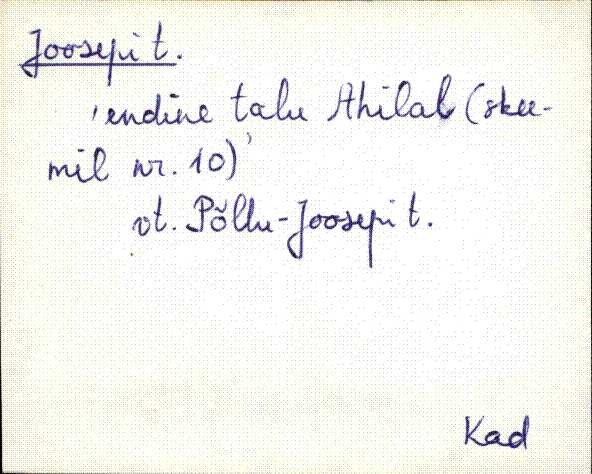 Joosepi t.
'endine talu Ahilal (skee-
mil nr. 10)'
vt. Põllu-Joosepi t.
Kad